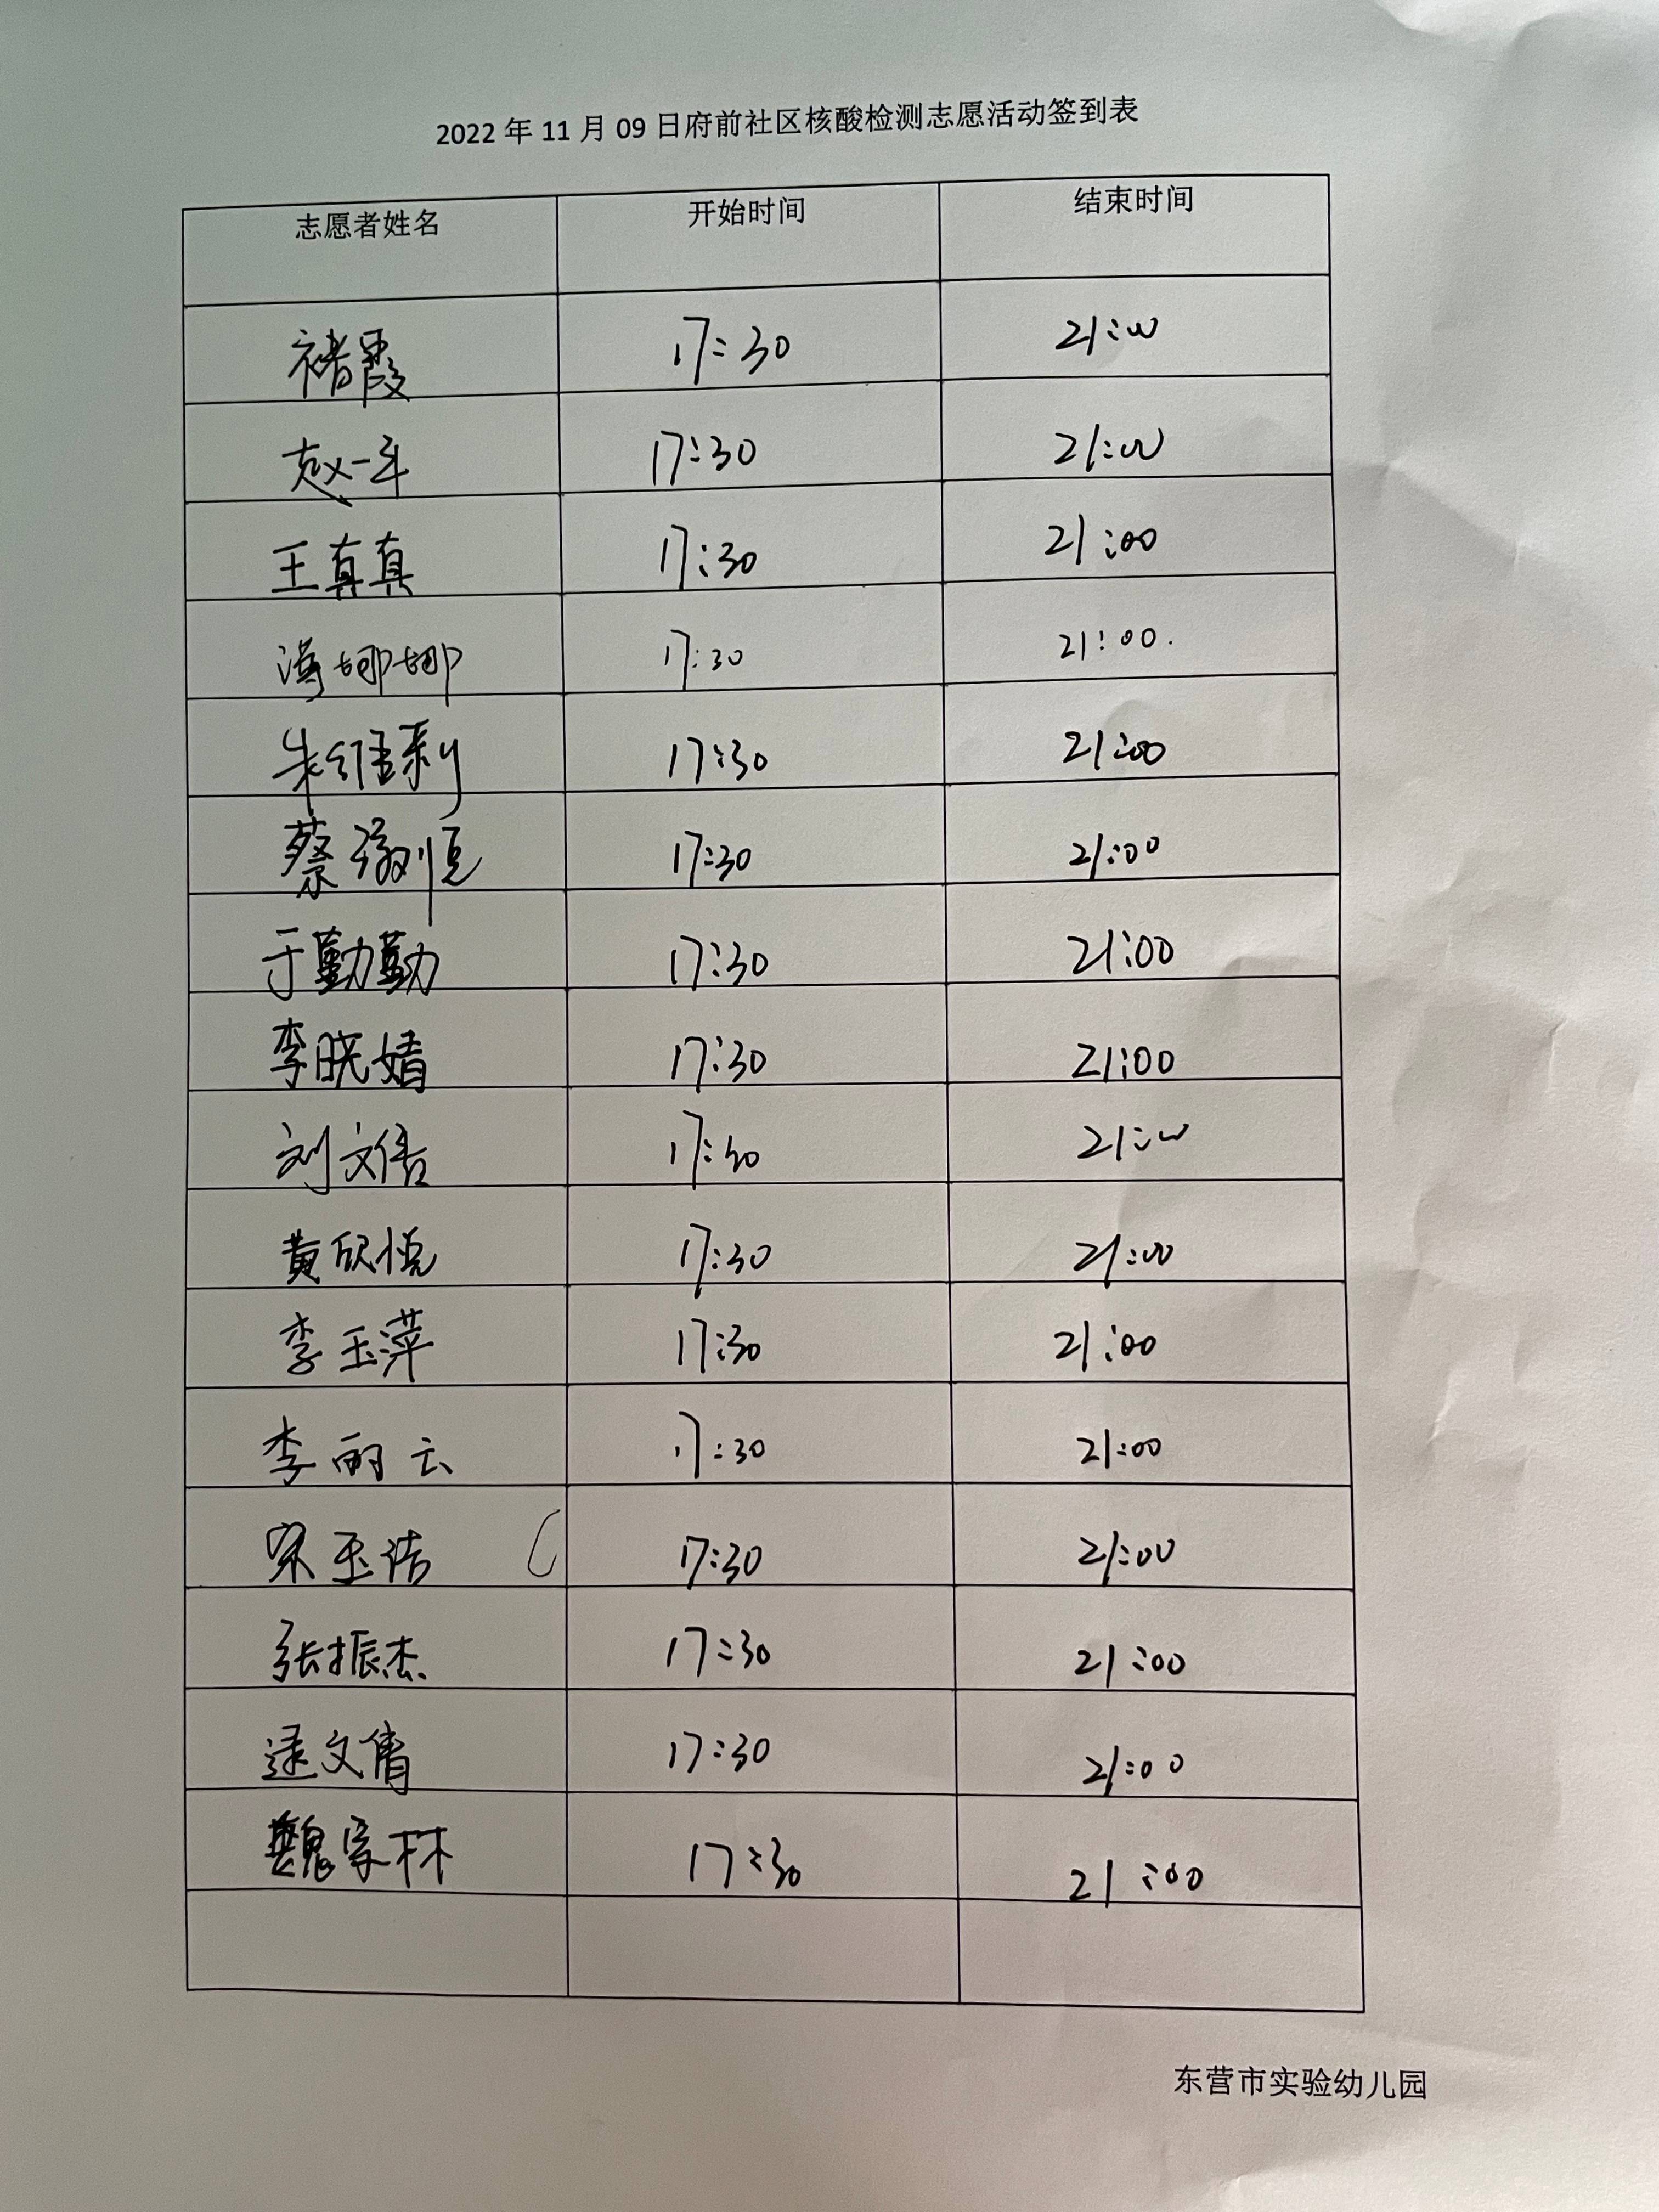 2022 年 11 月 09 日府前社区核酸检测志愿活动签到表
志愿者姓名 开始时间 结束时间
褚霞 17:30 21:00
赵一 17:30 21:00
王真真 17:30 21:00
娜娜 17:30 21:00.
朱维利 17:30 21:00
蔡 17:30 21:00
于勤勤 17:30 21:00
李晓婧 17:30 21:00
刘文倩 17:30 21:00
黄欣悦 17:30 21:00
李玉萍 17:30 21:00
李丽云 17:30 21:00
宋玉洁 17:30 21:00
张振杰 17:30 21:00
逯文倩 17:30 21:00
魏家林 17:30 21:00
东营市实验幼儿园